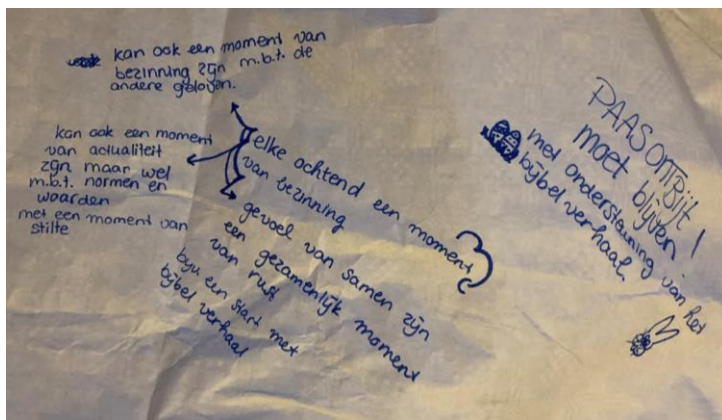 kan ook een moment van
bezinning zijn m.b.t. de
andere geloven.
kan ook een moment
van actualiteit
zijn maar wel
m.b.t. normen en
waarden
met een moment van
stilte
elke ochtend een moment
van bezinning
gevoel van samen zijn
een gezamenlijk moment
van rust
bijv een start met
bijbel verhaal
PAASONTBIJT
moet blijven!
met ondersteuning van het
bijbel verhaal